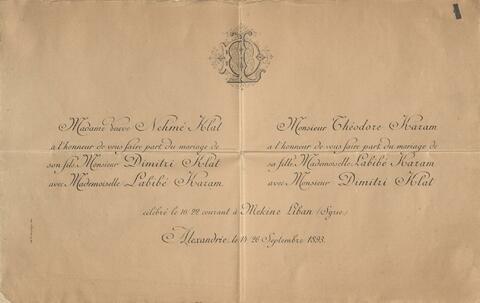 Madame veuve Nehmé Klat
a l'honneur de vous faire part du mariage de
son fils Monsieur Dimitri Klat
avec Mademoiselle Labibé Karam.
Monsieur Théodore Karam
a l'honneur de vous faire part du mariage de
sa fille Mademoiselle Labibé Karam
avec Monsieur Dimitri Klat
célébré le 10/22 courant à Mekine Liban (Syrie)
Alexandrie, le 14/26 Septembre 1893.